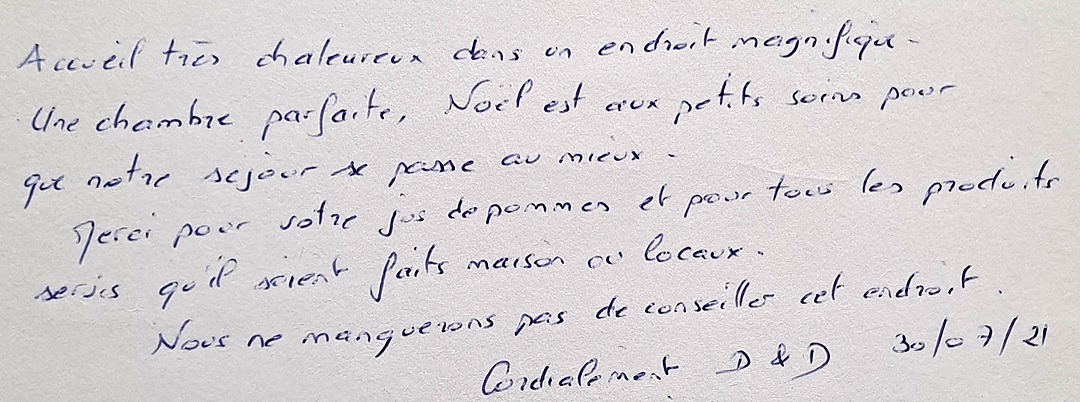 Accueil très chaleureux dans un endroit magnifique.
Une chambre parfaite, Noël est aux petits soins pour
que notre séjour se passe au mieux.
Merci pour votre jus de pommes et pour tous les produits
servis qu'il soient faits maison ou locaux.
Nous ne manquerons pas de conseiller cet endroit.
Cordialement D & D 30/07/21